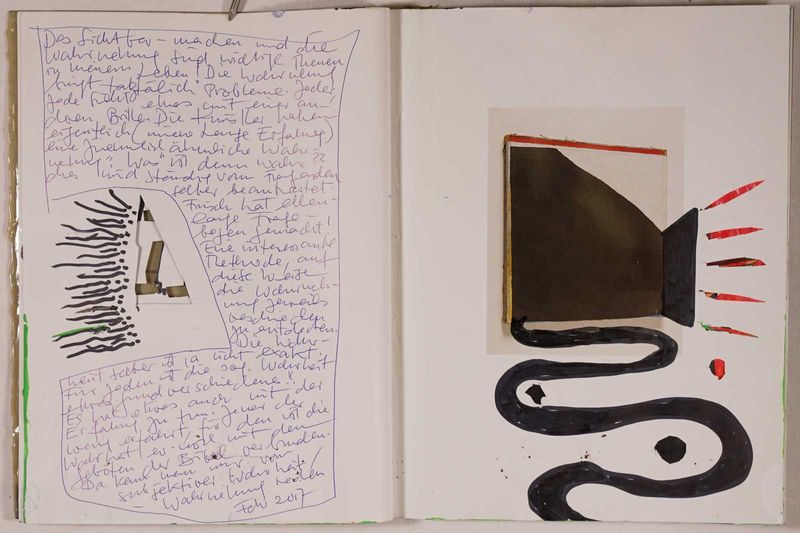 Das Sichtbar-machen und die
Wahrnehmung sind wichtige Themen
in meinem Leben! Die Wahrnehmung
bringt tatsächlich Probleme. Jeder
Jede sieht etwas mit einer an-
deren Brille. Die Künstler haben
eigentlich (meine lange Erfahrung)
eine ähnliche Wahr-
nehmung". "Was" ist denn wahr??
dies wird ständig vom
selber beantwortet.
Frisch hat ellen-
lange Frage-
bogen gemacht!
Eine interessante
Methode, auf
diese Weise
die Wahrneh-
mung jeweils
verschieden
zu entdecken.
Die Wahr-
heit selber ist ja nicht exakt.
Für jeden ist die sog. Wahrheit
etwas grundverschiedenes!
Es hat etwas auch mit der
Erfahrung zu tun. Jener der
wenig erfährt, für den ist die
Wahrheit mit den
geboten der Bibel verbunden.
Da kann man nur von
subjektiver Wahrheit /
– Wahrnehmung reden
2017